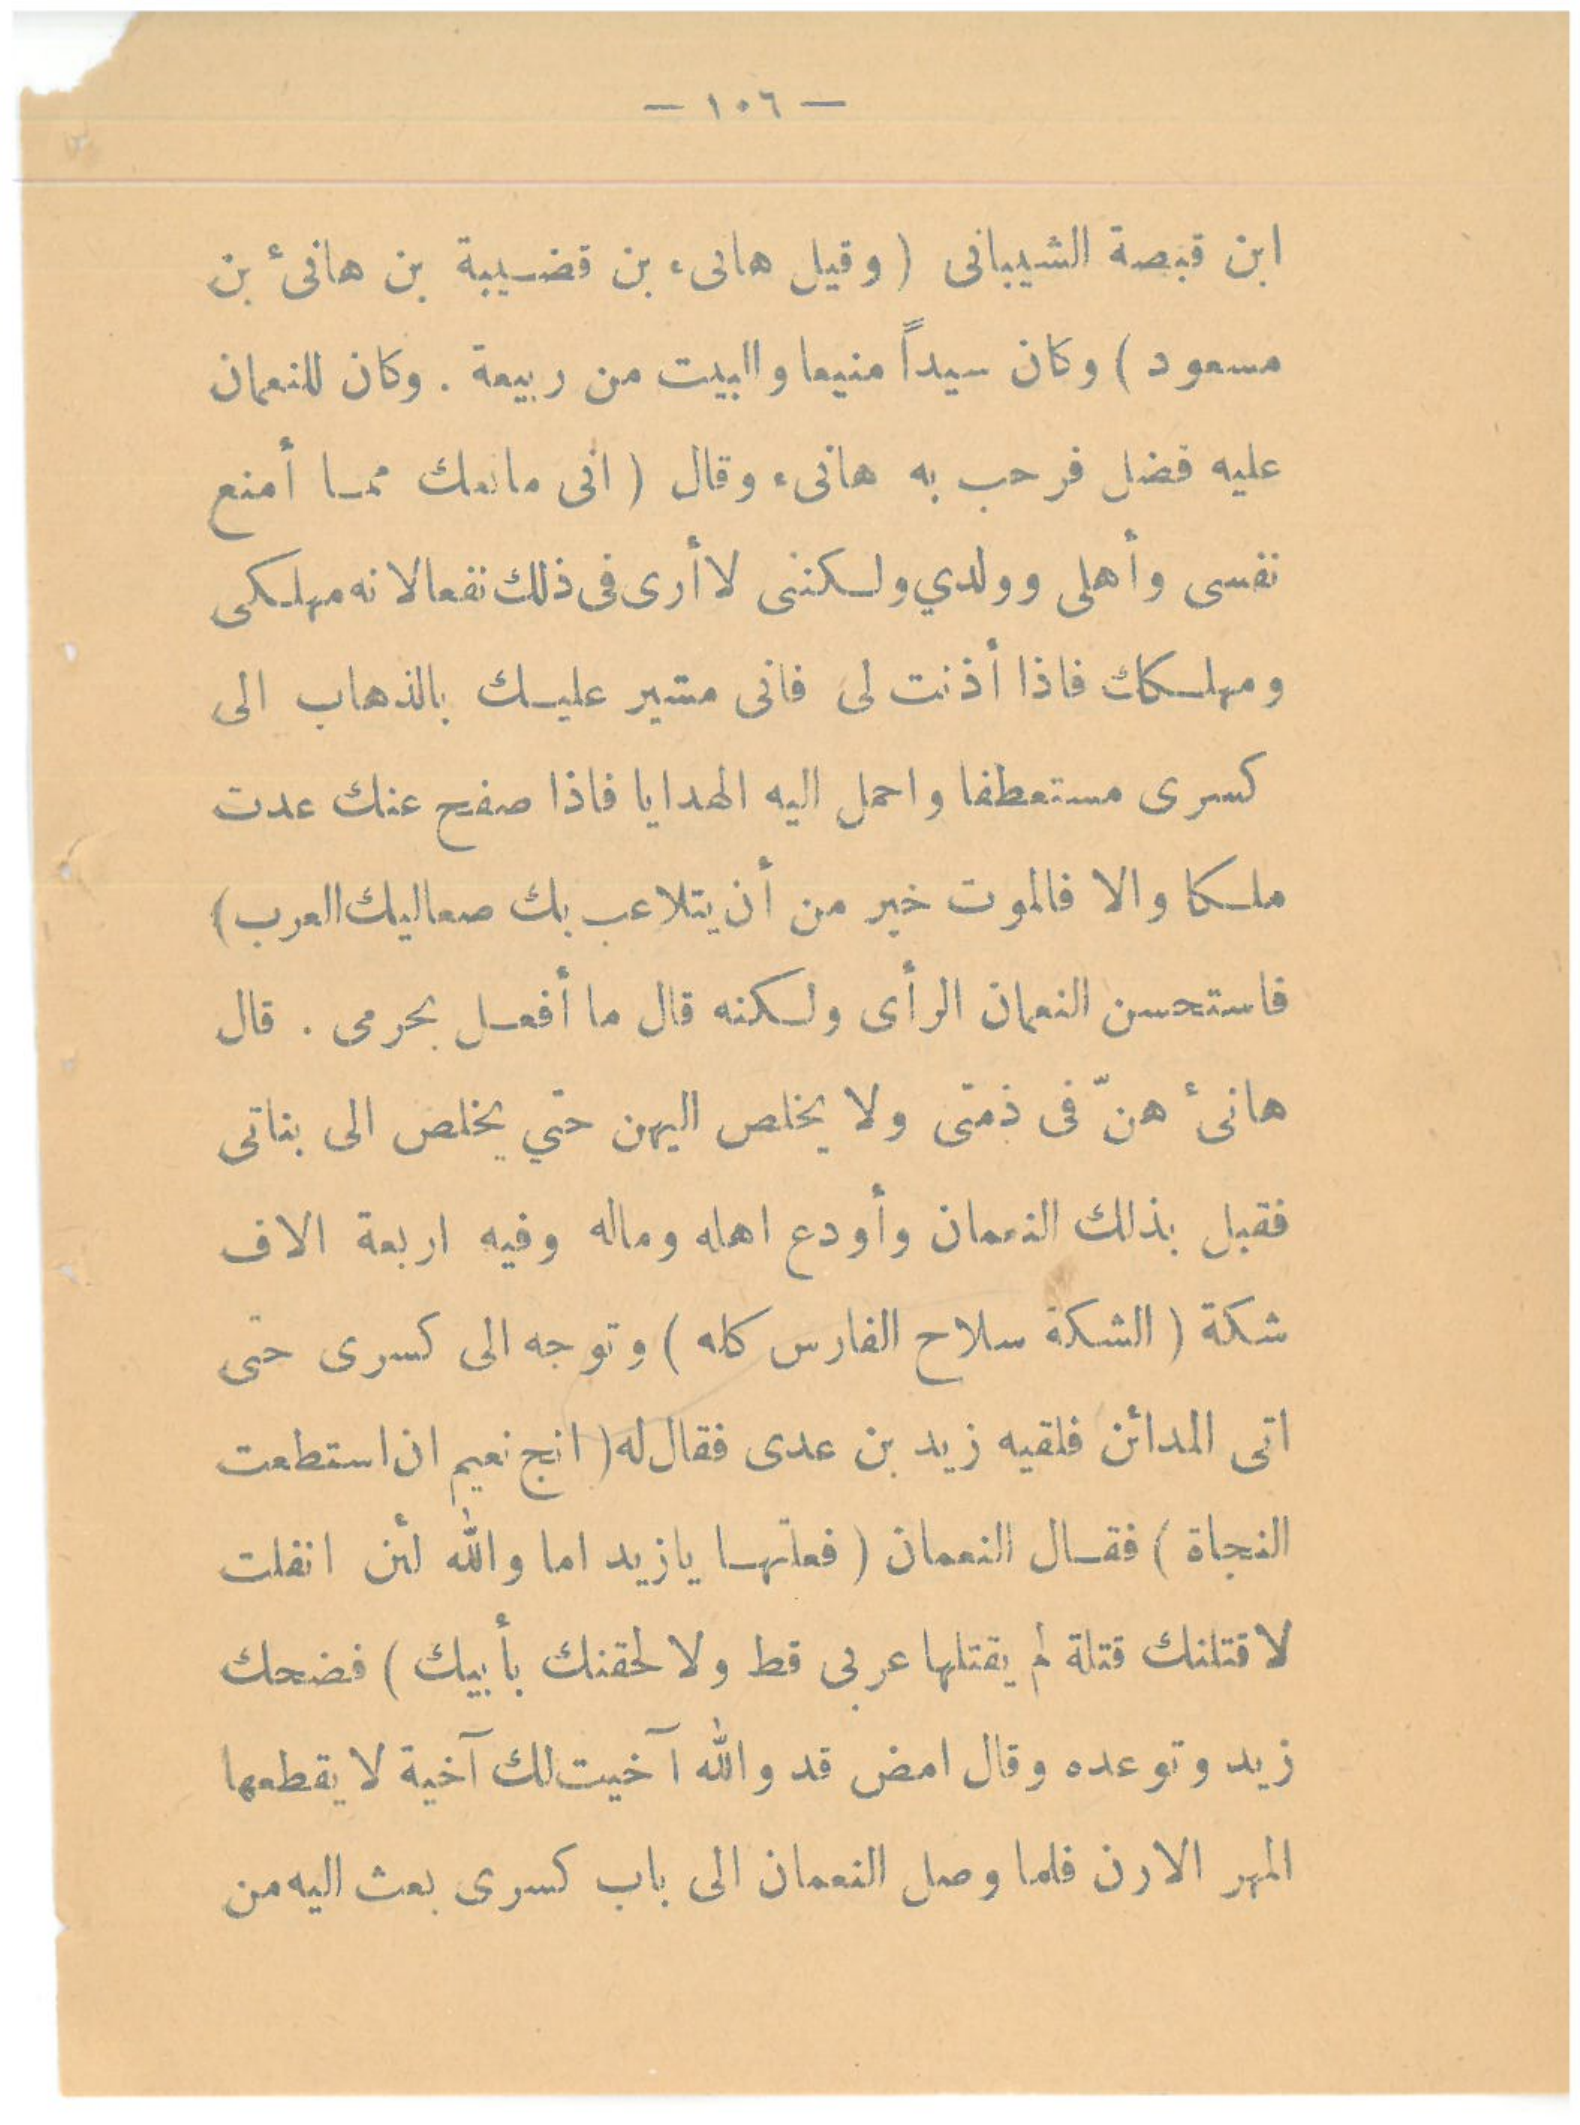 — ١٠٦ —
ابن قبصة الشيبانى ( وقيل هانىء بن قضيبة بن هانئ بن
مسعود ) وكان سيداً منيعا والبيت من ربيعة . وكان للنعمان
عليه فضل فرحب به هانىء وقال ( انى مانعك مما أمنع
نفسى وأهلى وولدي ولكننى لاأرى فى ذلك نفعا لانه مهلكى
ومهلكك فاذا أذنت لى فانى مشير عليك بالذهاب الى
كسرى مستعطفا واحمل اليه الهدايا فاذا صفح عنك عدت
ملكا والا فالموت خير من أن يتلاعب بك صعاليك العرب )
فاستحسن النعمان الرأى ولكنه قال ما أفعل بحرمى . قال
هانئ هنّ فى ذمتى ولا يخلص اليهن حتي يخلص الى بناتى
فقبل بذلك النعمان وأودع اهله وماله وفيه اربعة الاف
شكة ( الشكة سلاح الفارس كله ) وتوجه الى كسرى حتى
اتى المدائن فلقيه زيد بن عدى فقال له ( انج نعيم ان استطعت
النجاة ) فقال النعمان ( فعلتها يازيد اما والله لئن انفلت
لاقتلنك قتلة لم يقتلها عربى قط ولالحقنك بأبيك ) فضحك
زيد وتوعده وقال امض قد والله آخيت لك آخية لا يقطعها
المهر الارن فلما وصل النعمان الى باب كسرى بعث اليه من